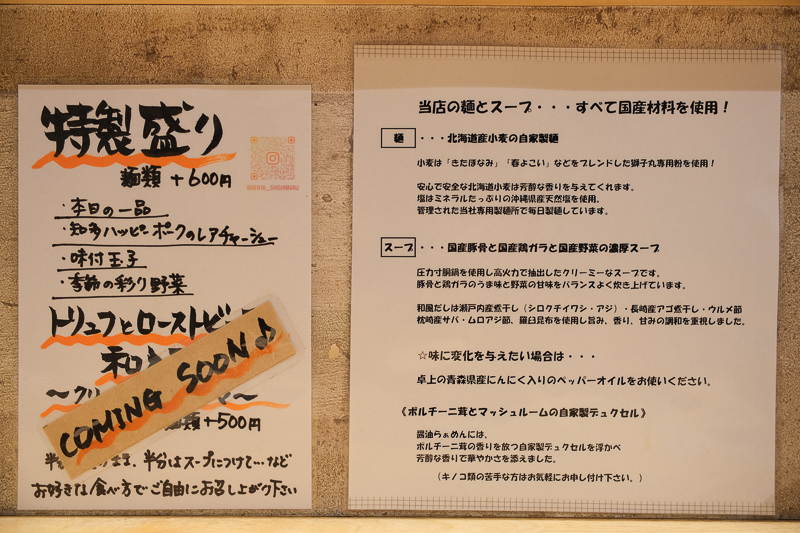 特製盛り
麺類 +600円
@SEKIYA_SHISHIMARU
・本日の一品
・知多ハッピーポークのレアチャーシュー
・味付玉子
・季節の彩り野菜
トリュフとローストビ
和
COMING SOON♪
麺類 +500円
半分はスープにつけて…など
お好きな食べ方でご自由にお召し上がり下さい
当店の麺とスープ・・・すべて国産材料を使用!
麺 ・・・北海道産小麦の自家製麺
小麦は「きたほなみ」「春よこい」などをブレンドした獅子丸専用粉を使用!
安心で安全な北海道小麦は芳醇な香りを与えてくれます。
塩はミネラルたっぷりの沖縄県産天然塩を使用。
管理された当社専用製麺所で毎日製麺しています。
スープ ・・・国産豚骨と国産鶏ガラと国産野菜の濃厚スープ
圧力寸胴鍋を使用し高火力で抽出したクリーミーなスープです。
豚骨と鶏ガラのうま味と野菜の甘味をバランスよく炊き上げています。
和風だしは瀬戸内産煮干し(シロクチイワシ・アジ)・長崎産アゴ煮干し・ウルメ節
枕崎産サバ・ムロアジ節、羅臼昆布を使用し旨み、香り、甘みの調和を重視しました。
☆味に変化を与えたい場合は・・・
卓上の青森県産にんにく入りのペッパーオイルをお使いください。
《ポルチーニ茸とマッシュルームの自家製デュクセル》
醤油らぁめんには、
ポルチーニ茸の香りを放つ自家製デュクセルを浮かべ
芳醇な香りで華やかさを添えました。
(キノコ類の苦手な方はお気軽にお申し付け下さい。)